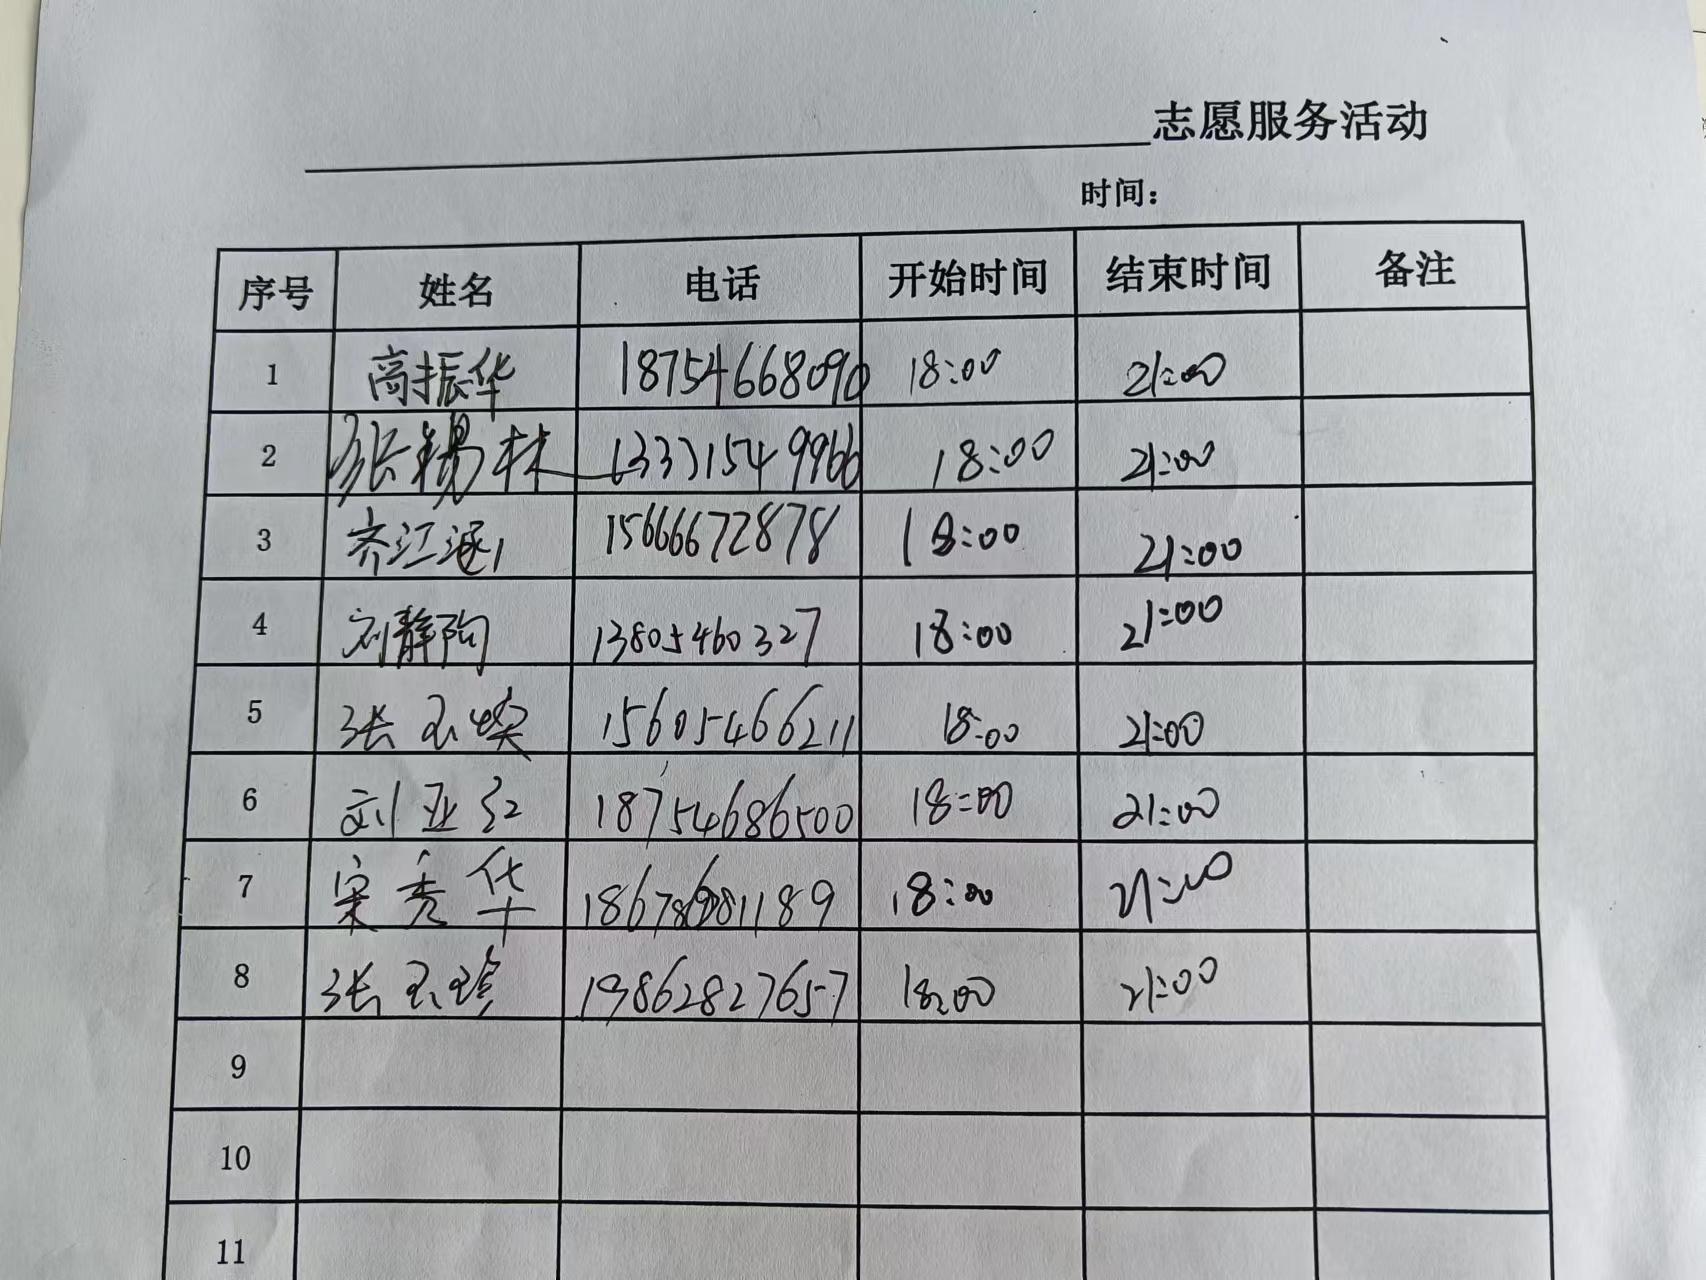 志愿服务活动
时间：
序号 姓名 电话 开始时间 结束时间 备注
1 高振华 18754668090 18:00 21:00
2 张锡林 13331549966 18:00 21:00
3 齐江涵 15666672878 18:00 21:00
4 刘静陶 13805460327 18:00 21:00
5 张玉焕 15605466211 18:00 21:00
6 刘亚红 18754686500 18:00 21:00
7 宋秀华 18:00 21:00
8 张玉珍 19862827657 18:00 21:00
9
10
11